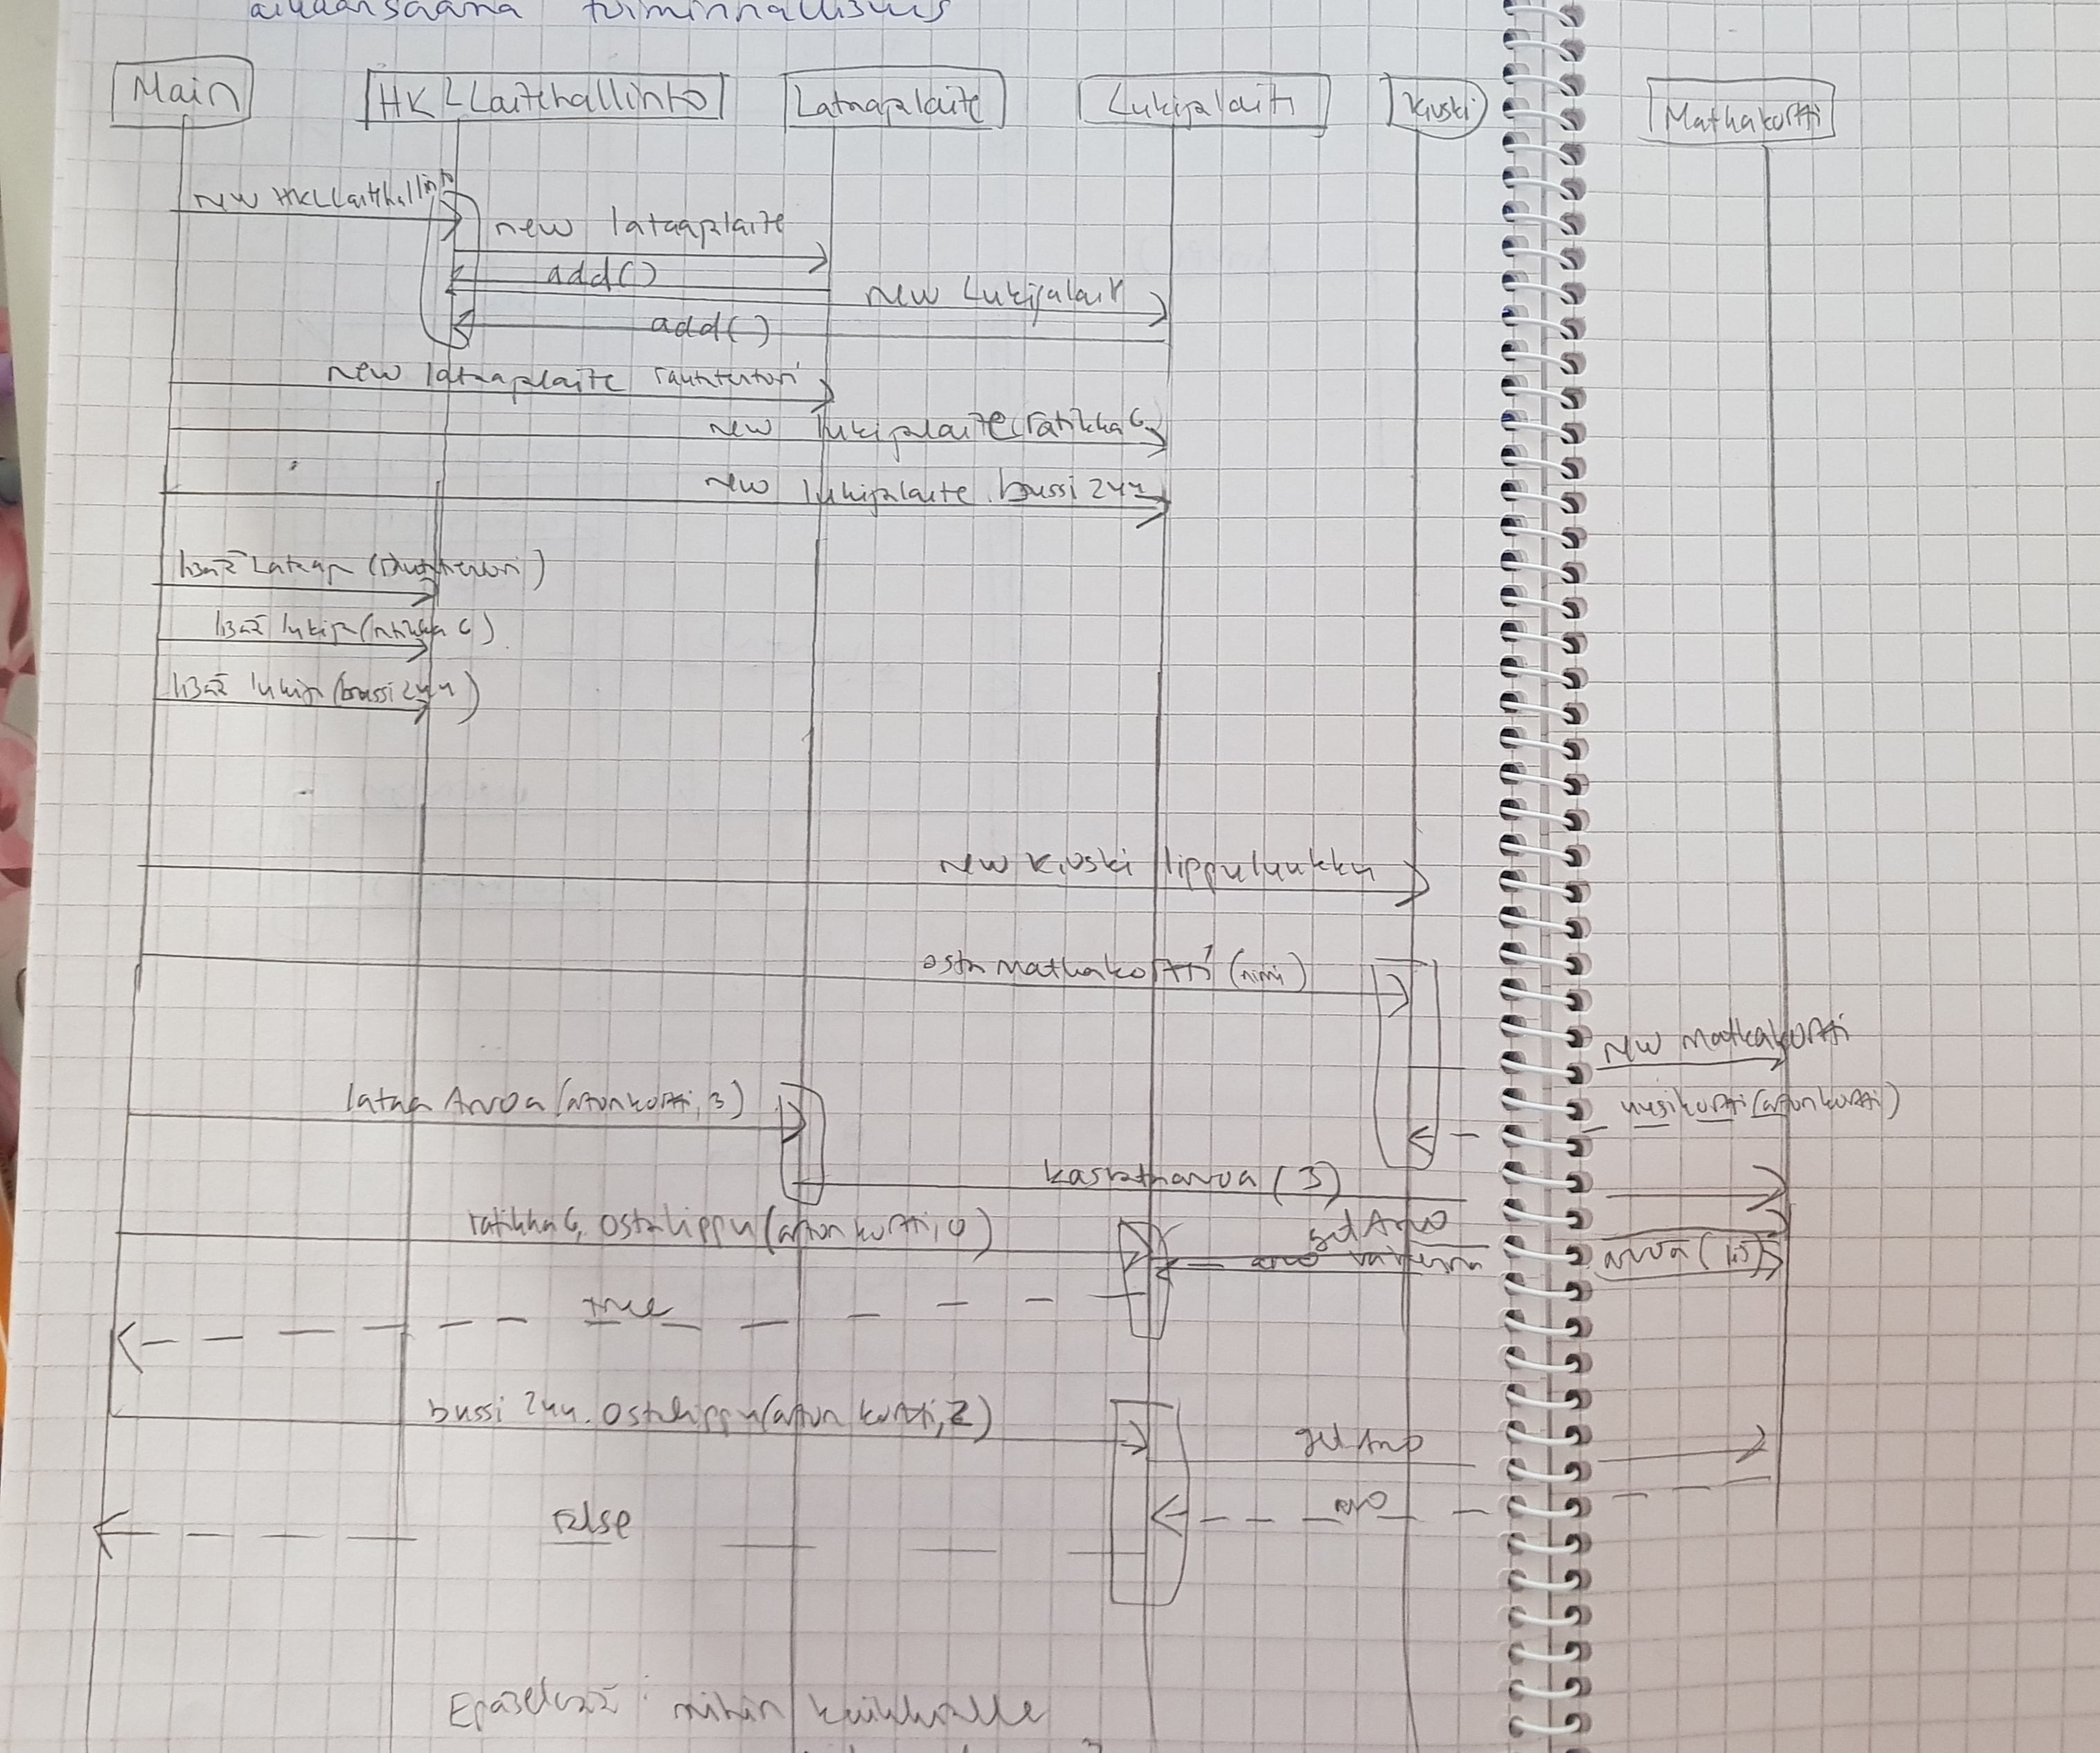 aikaansaama toiminnallisuus
Main HKLLaitehallinto Lataajalaite Lukijalaite Kioski Matkakortti
new HKLLaitehallinto
new lataajalaite
add()
new Lukijalait
add()
new lataajalaite rautatietori
new lukijalaite ratikka6
new lukijalaite bussi244
lisää Lataaja (rautatietori)
lisää lukija (ratikka 6)
lisää lukija (bussi244)
new Kioski lippuluukku
osta matkakortti (nimi)
new Matkakortti
lataa Arvoa (artunkortti, 3)
uusikortti (artunkortti)
kasvata arvoa (3)
ratikka6. osta lippu (artunkortti, 0)
get Arvo
arvo vähennä arvoa (1.5)
true
bussi 244. osta lippu (artun kortti, 2)
get Arvo
arvo
false
Epäselvää: mihin kaikkialle